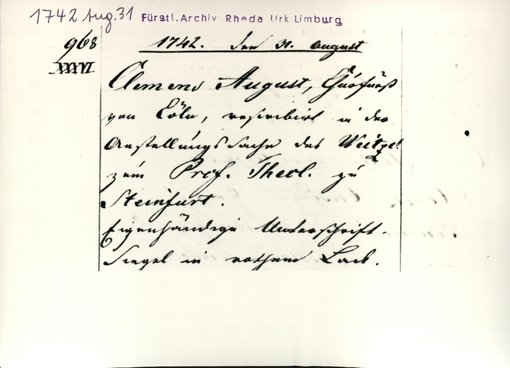 1742 Aug. 31 Fürstl. Archiv Rheda Urk. Limburg
968 1742. den 31. August
XXXVI
Clemens August, Churfürst
von Cöln, rescribirt in der
Anstellungs Sache des Weitzel
zum Prof. Theol. zu
Steinfurt.
Eigenhändige Unterschrift.
Siegel in rothem Lack.